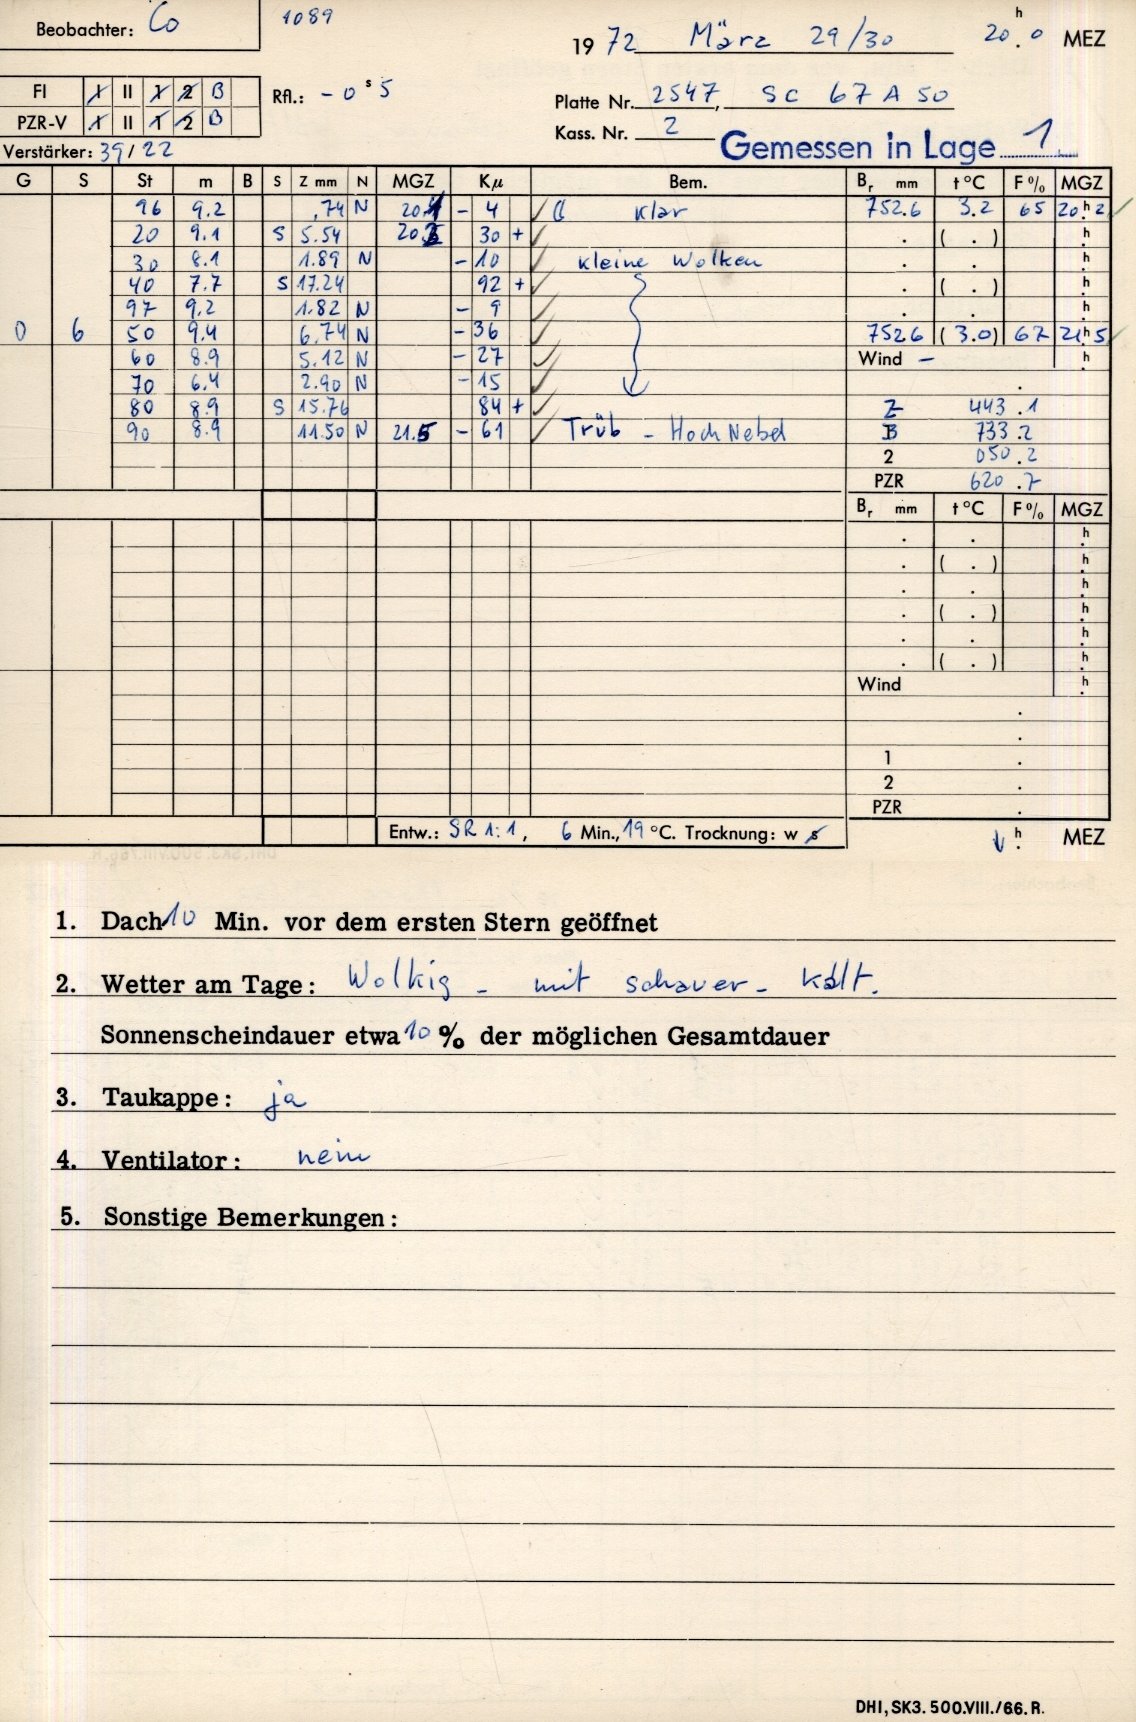 Beobachter: Co
1089
1972 März 29/30 20h.0 MEZ
FI I II 1 2 B
Rfl.: - 0s5
Platte Nr. 2547, SC 67 A 50
PZR-V I II 1 2 B
Kass. Nr. 2
Gemessen in Lage 1
Verstärker: 39/22
G S St m B S Z mm N MGZ Kµ Bem. Br mm t°C F% MGZ
96 9.2 .74 N - 4 klar 752.6 3.2 65 20h.2
20 9.1 S 5.54 30 + . ( . ) h.
30 8.1 1.89 N - 10 kleine Wolken . . h.
40 7.7 S 17.24 92 + . ( . ) h.
97 9.2 1.82 N - 9 . . h.
0 6 50 9.4 6.74 N - 36 752.6 (3.0) 67 21h.5
60 8.9 5.12 N - 27 Wind - h.
70 6.4 2.90 N - 15 .
80 8.9 S 15.76 84 + Z 443.1
90 8.9 11.50 N 21.5 - 61 Trüb - HochNebel B 733.2
2 050.2
PZR 620.7
Br mm t°C F% MGZ
. . h.
. ( . ) h.
. . h.
. ( . ) h.
. . h.
. ( . ) h.
Wind h.
.
.
1 .
2 .
PZR .
Entw.: SR 1:1, 6 Min., 19 °C. Trocknung: w s
h. MEZ
1. Dach 10 Min. vor dem ersten Stern geöffnet
2. Wetter am Tage: Wolkig - mit schauer - Kalt.
Sonnenscheindauer etwa 10 % der möglichen Gesamtdauer
3. Taukappe: ja
4. Ventilator: nein
5. Sonstige Bemerkungen:
DHI, SK3. 500.VIII./66. R.